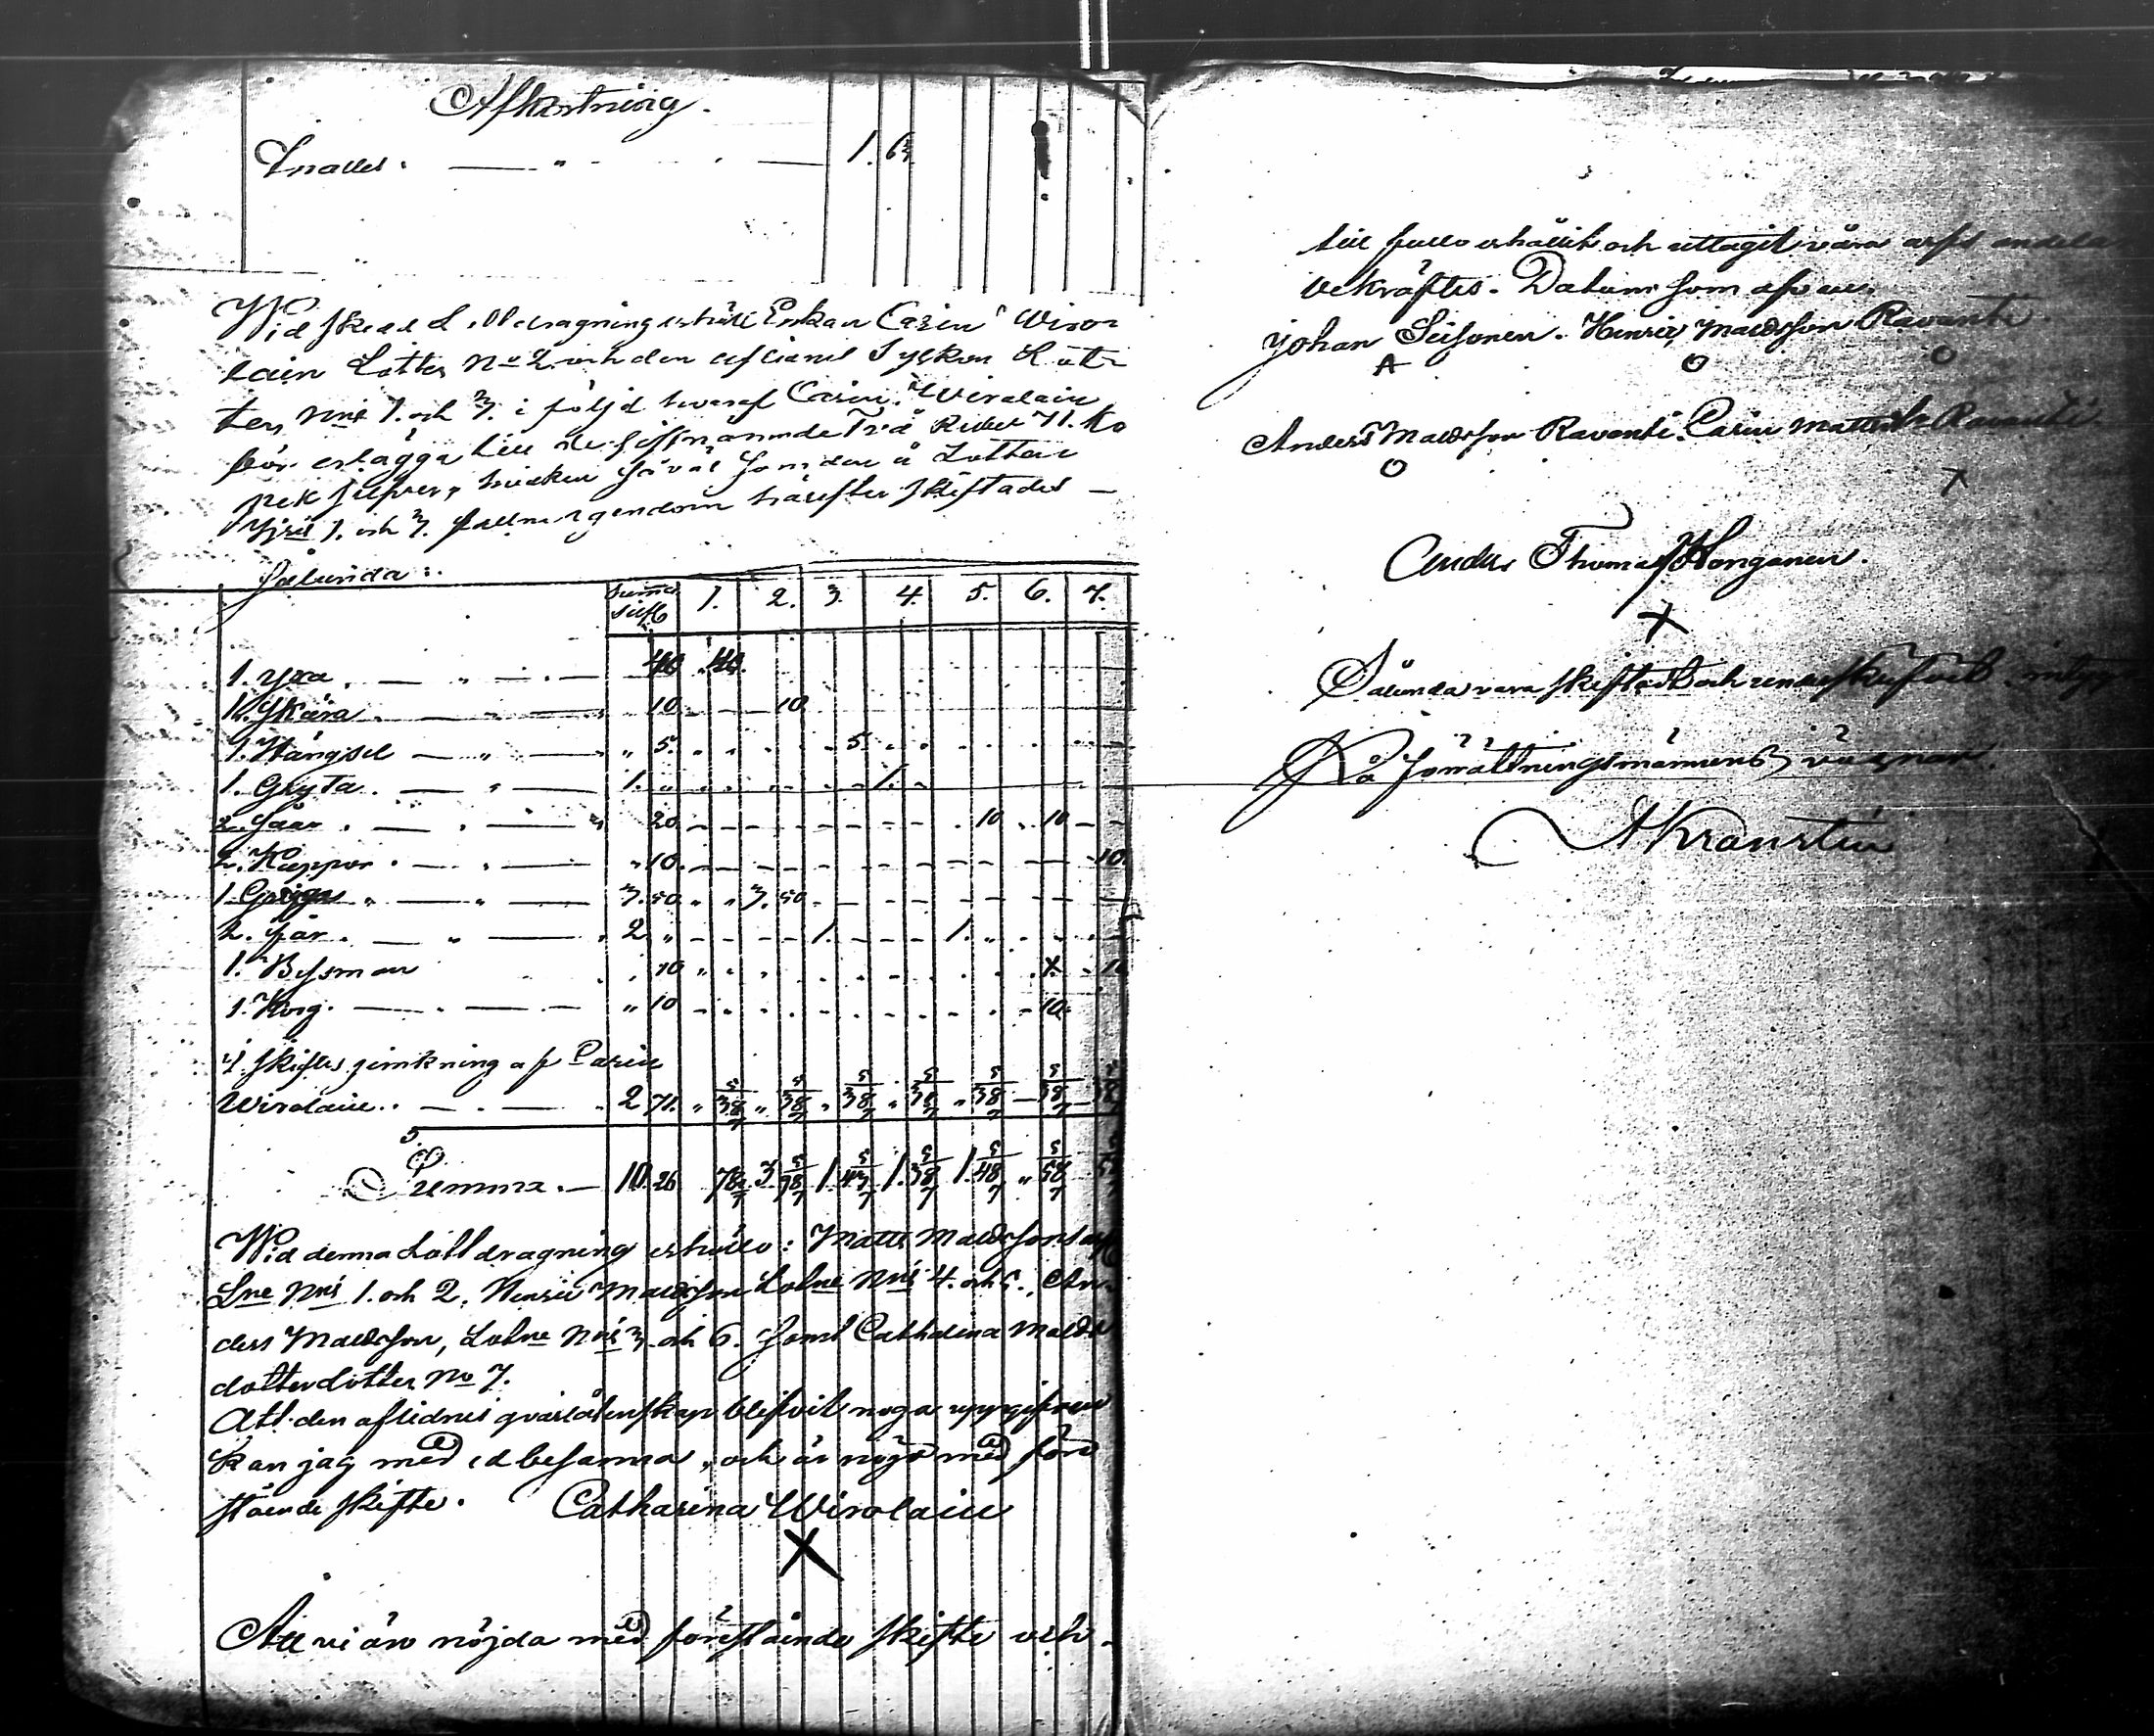 Afkortning.
Snattes. 1. 6
Wid skedd Lottdragning erhöll Enkan Carin Wiro-
lain Lotten No 2 och den aflidnes Syskon Lot-
ten Nris 1. och 3. i följd hvaraf Carin Wirolain
bör erlägga till de sistnämnde Två Rubel 71. Ko
pek silfver, hvilken såväl som den å Lotten
Nris 1. och 3. fallne egendom härefter skiftades
sålunda:
Summa silfr 1. 2. 3. 4. 5. 6. 7.
1. Yxa. 40 40.
1. Skära. 10 10
1. Hängsel " 5. 5.
1. Gryta. 1. " 1.
2. Såar. " 20 10 10
2. Kappor. " 10. 10.
1. " 3. 50 3. 50
2. får. 2 " 1. 1.
1. Bessman 10 X. 10
1. Korg. " 10 10.
I skiftes jemkning af Carin
Wirolain. 2 71. " 38 5/7 " 38 5/7 " 38 5/7 " 38 5/7 " 38 5/7 38 5/7 38 5/7
Summa. 10. 26 78 5/7 3 98 5/7 1. 43 5/7 1. 38 5/7 1. 48 5/7 " 58 5/7
Wid denna Lottdragning erhöllo: Matts Mattsson
Lne Nris 1. och 2. Henric Mattsson Lotne Nris 4. och 5. An-
ders Mattsson, Lotne Nris 3 och 6. samt Catharina Matts
dotter Lotten No 7.
Att den aflidnes qvarlåtenskap blifvit noga uppgifven
kan jag med ed besanna, och är nögd med före
stående skifte. Catharina Wirolain
X
Att vi äro nöjda med förestående skifte och
till fullo erhållit och uttagit våra arfs andelar
bekräftes. Datum som ofvan.
Johan Seisonen. Henric Mattsson Ravantti
A O O
Anders Mattsson Ravantti. Carin Mattsdr Ravantti
O X
Anders Thomasson Honganen.
X
Sålunda vara skiftadt och
På Förrättningsmännens vägnar.
A Kranstén